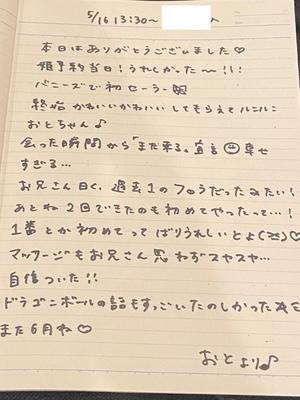 5/16 13:30~ へ
本日はありがとうございました♡
姫予約当日!うれしかった〜!!!
バニーズで初セーラー服
終始かわいいかわいいしてもらえてルンルン
おとちゃん♪
会った瞬間から「また来る」宣言 幸せ
すぎる…
お兄さん曰く、過去1のフェラだったみたい!
あとね2回できたのも初めてやったって…!
1番とか初めてってばりうれしいとよ(≧≦)♡
マッサージもお兄さん思わずスヤスヤ…
自信ついた!!
ドラゴンボールの話もすっごいたのしかった
また6月ね♡
おとより♪